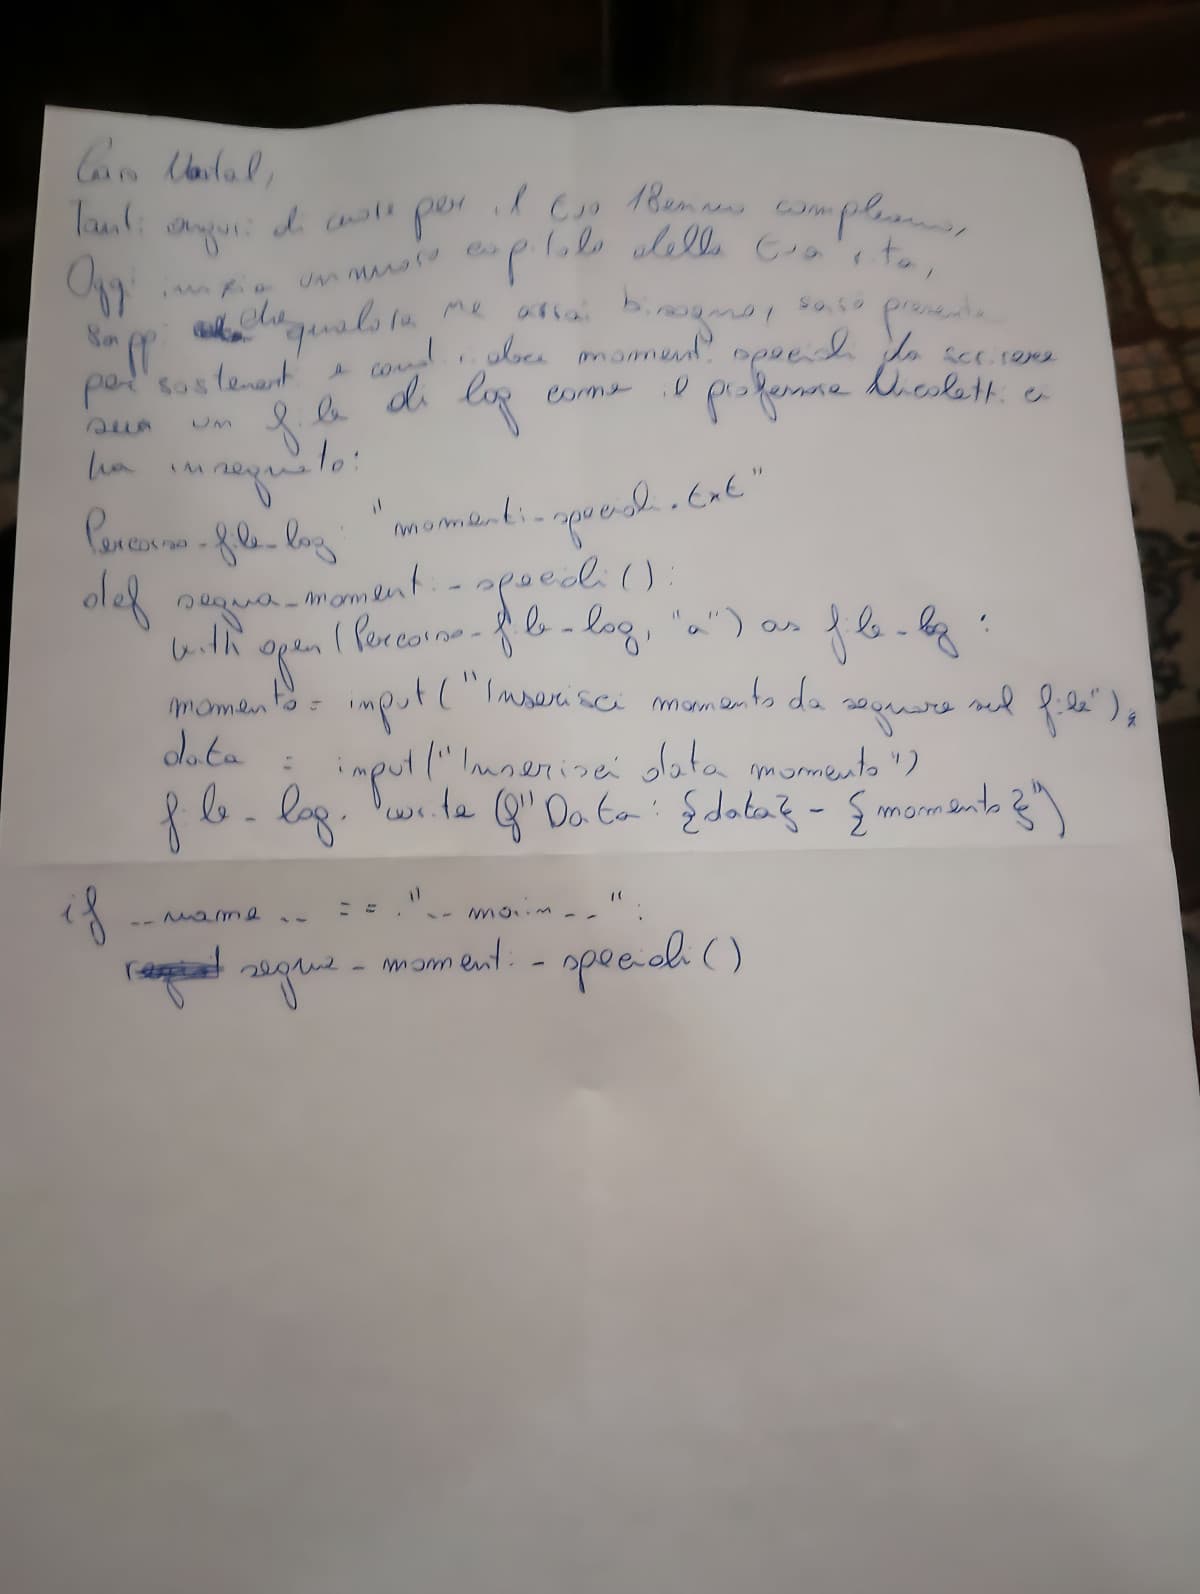 Caro
Tanti auguri di cuore per il tuo 18enne compleanno,
Oggi inizia un nuovo capitolo della tua vita,
sappi che qualora ne assai bisogno, sarò presente
per sostenerti e momenti speciali da scrivere
su un file di log come il professore Nicoletti ci
ha insegnato:
Percorso_file_log "momenti_speciali.txt"
def segna_momenti_speciali():
with open(Percorso_file_log, "a") as file_log:
momento = input("Inserisci momento da segnare sul file");
data = input("Inserisci data momento")
file_log.write(f"Data: {data} - {momento}")
if __name__ == "__main__":
segna_momenti_speciali()